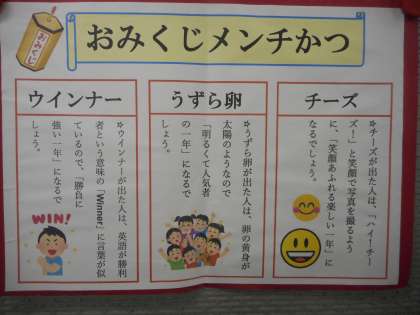 おみくじ
おみくじメンチかつ
チーズ
☆チーズが出た人は、「ハイ!チー
ズ!」と笑顔で写真を撮るよう
に、「笑顔あふれる楽しい一年」に
なるでしょう。
うずら卵
☆うずら卵が出た人は、卵の黄身が
太陽のようなので
「明るくて人気者
の一年」になるで
しょう。
ウインナー
☆ウインナーが出た人は、英語が勝利
者という意味の「Winner」に言葉が似
ているので、「勝負に
強い一年」になるで
しょう。
WIN!